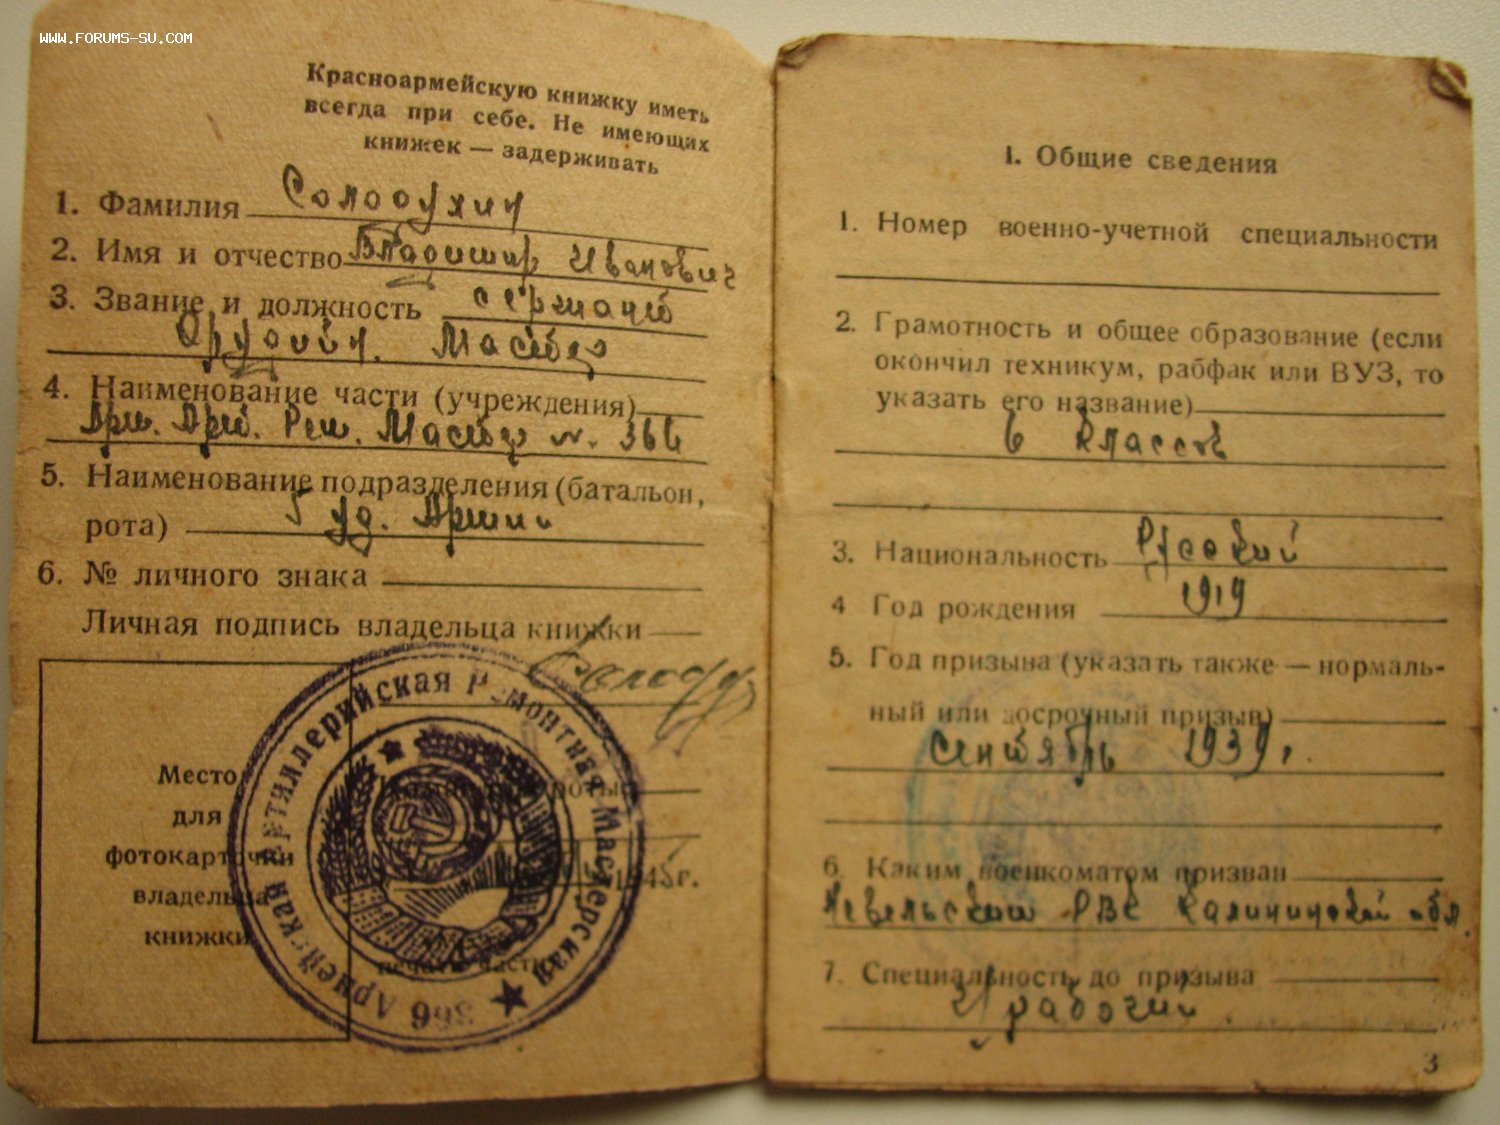 WWW.FORUMS-SU.COM
Красноармейскую книжку иметь
всегда при себе. Не имеющих
книжек — задерживать
1. Фамилия Солодухин
2. Имя и отчество Владимир Иванович
3. Звание и должность сержант
Орудийн. Мастер
4. Наименование части (учреждения)
Арм. Арт. Рем. Мастер N. 366
5. Наименование подразделения (батальон,
рота) 5 уд. Армии
6. № личного знака
Личная подпись владельца книжки
Место
для
фотокарточки
владельца
книжки
1945 г.
печать части
366 Армейская Артиллерийская Ремонтная Мастерская
I. Общие сведения
1. Номер военно-учетной специальности
2. Грамотность и общее образование (если
окончил техникум, рабфак или ВУЗ, то
указать его название)
6 классов
3. Национальность Русский
4 Год рождения 1919
5. Год призыва (указать также — нормаль-
ный или досрочный призыв)
Сентябрь 1939 г.
6 Каким военкоматом призван
Невельским РВК Калининской обл.
7. Специальность до призыва
рабочий
3